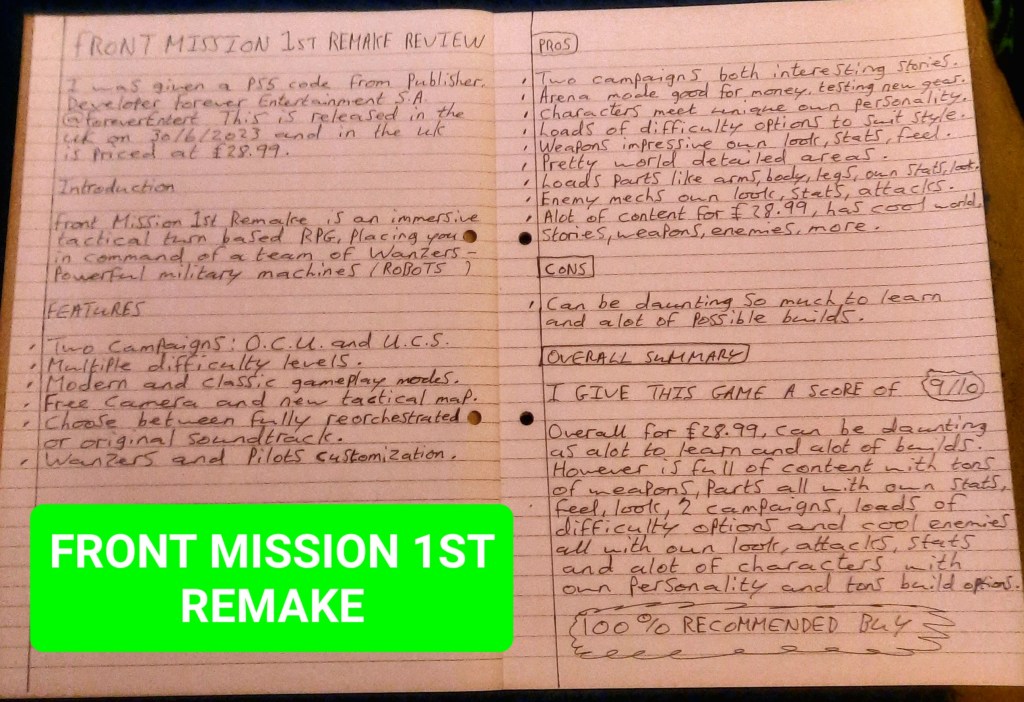 FRONT MISSION 1ST REMAKE REVIEW
I was given a PS5 code from Publisher.
Developer Forever Entertainment S.A.
@foreverEntert This is released in the
uk on 30/6/2023 and in the uk
is priced at £28.99.
Introduction
Front Mission 1st Remake is an immersive
tactical turn based RPG, Placing you
in command of a team of Wanzers -
Powerful military machines (ROBOTS )
FEATURES
. Two Campaigns: O.C.U. and U.C.S.
. Multiple difficulty levels.
. Modern and classic gameplay modes.
. Free Camera and new tactical map.
. Choose between fully reorchestrated
or original soundtrack.
. Wanzers and Pilots customization.
PROS
. Two campaigns both interesting stories.
. Arena mode good for money, testing new gear.
. Characters meet unique own personality.
. Loads of difficulty options to suit style.
. Weapons impressive own look, stats, feel.
. Pretty world detailed areas.
. Loads Parts like arms, body, legs, own stats, look.
. Enemy mechs own look, stats, attacks.
. Alot of content for £28.99, has cool world,
stories, weapons, enemies, more.
CONS
. Can be daunting so much to learn
and alot of possible builds.
OVERALL SUMMARY
I GIVE THIS GAME A SCORE OF 9/10
Overall for £28.99, can be daunting
as alot to learn and alot of builds.
However is full of content with tons
of weapons, Parts all with own stats,
feel, look, 2 campaigns, loads of
difficulty options and cool enemies
all with own look, attacks, stats
and alot of characters with
own personality and tons build options.
100% RECOMMENDED BUY
FRONT MISSION 1ST
REMAKE